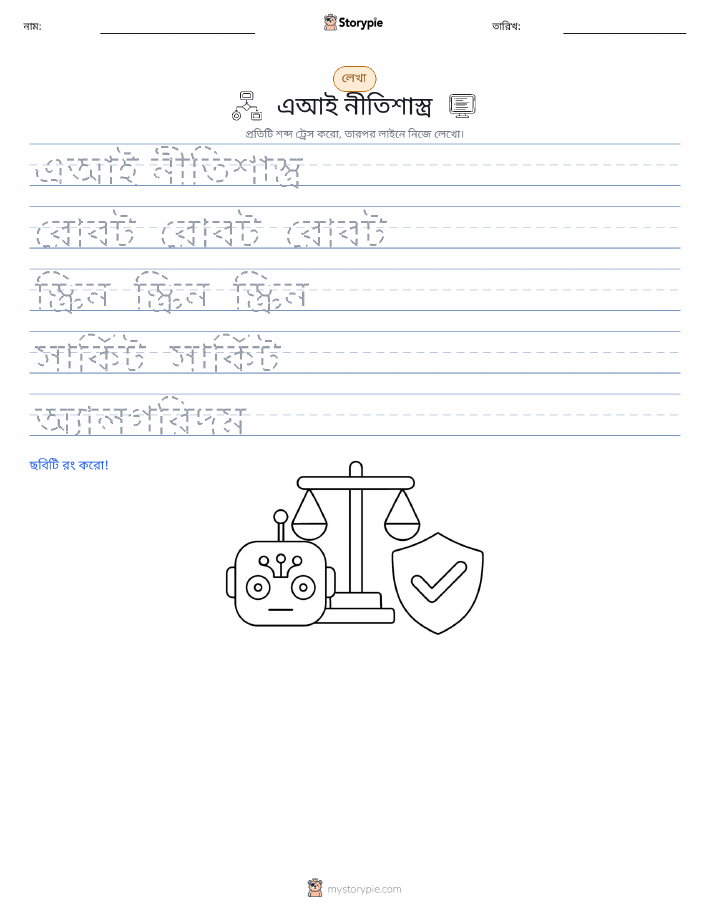 নাম:
Storypie
তারিখ:
লেখা
এআই নীতিশাস্ত্র
প্রতিটি শব্দ ট্রেস করো, তারপর লাইনে নিজে লেখো।
এআই নীতিশাস্ত্র
রোবট রোবট রোবট
স্ক্রিন স্ক্রিন স্ক্রিন
সার্কিট সার্কিট
অ্যালগরিদম
ছবিটি রং করো!
mystorypie.com